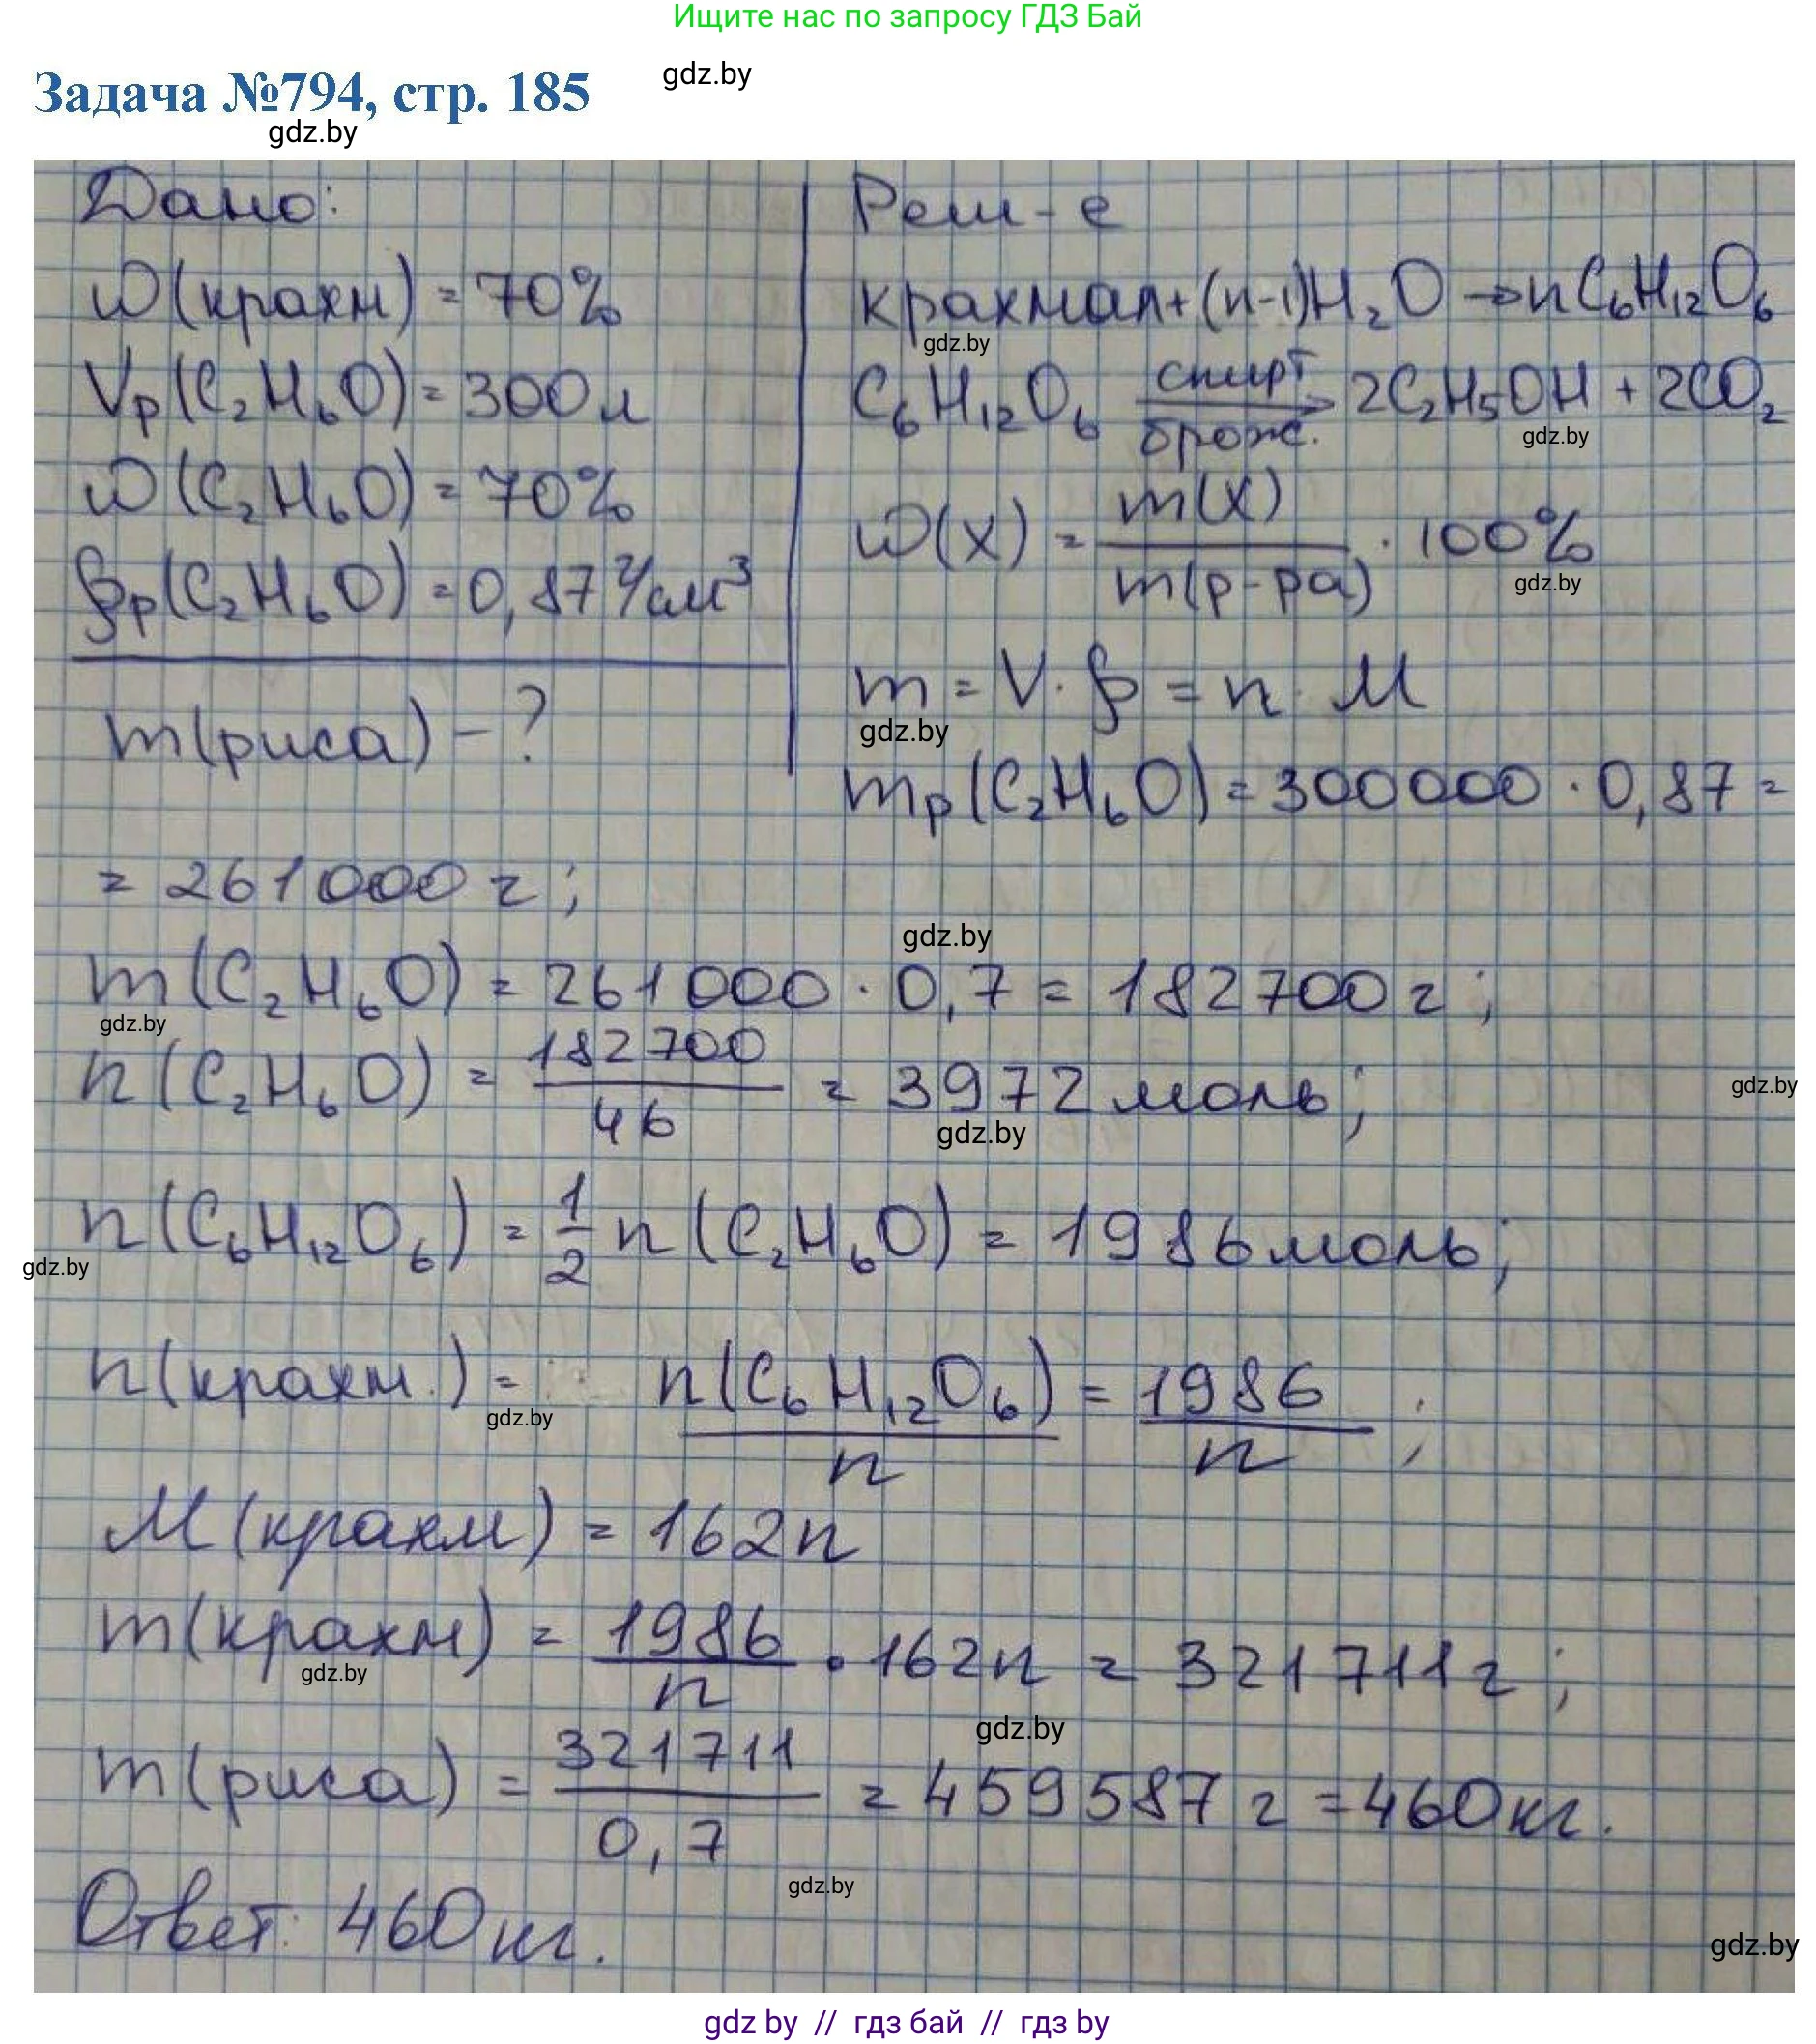 Ищите нас по запросу ГДЗ Бай
Задача №794, стр. 185
gdz.by
gdz.by
Дано:
ω(крахм) = 70%
Vр(C₂H₆O) = 300 л
ω(C₂H₆O) = 70%
ρр(C₂H₆O) = 0,87 г/см³
m(риса) - ?
Реш-е
крахмал + (n-1)H₂O → nC₆H₁₂O₆
gdz.by
C₆H₁₂O₆ спирт. брож. → 2C₂H₅OH + 2CO₂
gdz.by
ω(X) = m(X) / m(р-ра) · 100%
gdz.by
m = V · ρ = n · M
gdz.by
mр(C₂H₆O) = 300000 · 0,87 =
= 261000 г;
gdz.by
m(C₂H₆O) = 261000 · 0,7 = 182700 г;
gdz.by
n(C₂H₆O) = 182700 / 46 = 3972 моль;
gdz.by
gdz.by
n(C₆H₁₂O₆) = 1/2 n(C₂H₆O) = 1986 моль;
gdz.by
n(крахм.) = n(C₆H₁₂O₆) / n = 1986 / n ;
gdz.by
M(крахм) = 162n
m(крахм) = 1986 / n · 162n = 321711 г;
gdz.by
gdz.by
m(риса) = 321711 / 0,7 = 459587 г = 460 кг.
gdz.by
Ответ: 460 кг.
gdz.by
gdz by // гдз бай // гдз by